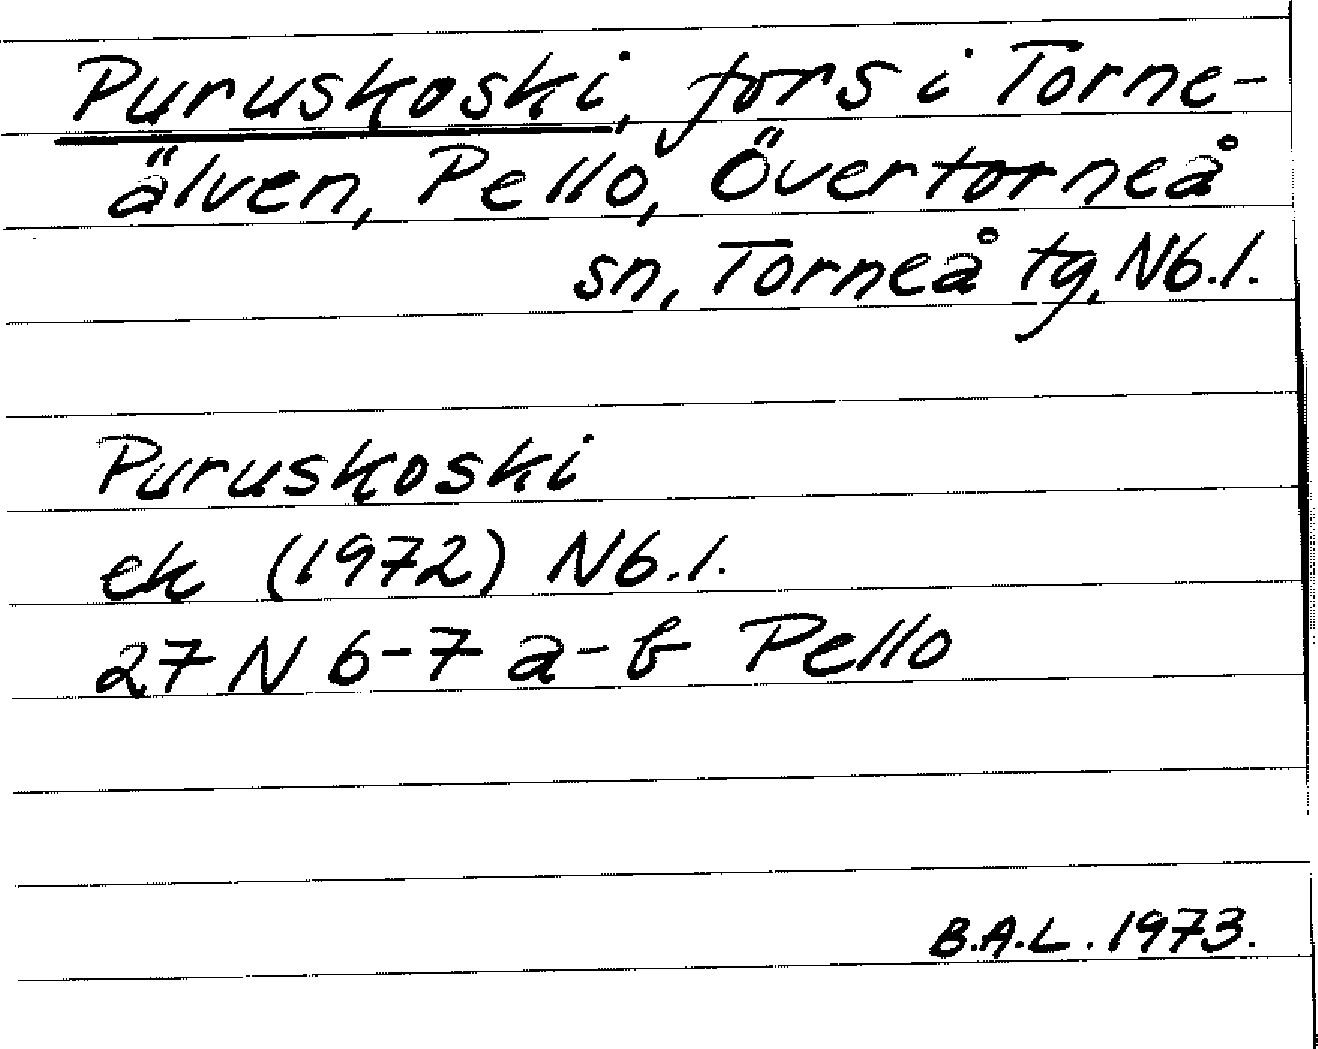 Puruskoski, fors i Torne-
älven, Pello, Övertorneå
sn, Torneå tg, Nb.l.
Puruskoski
ek (1972) Nb.l.
27 N 6-7 a-b Pello
B.A.L. 1973.